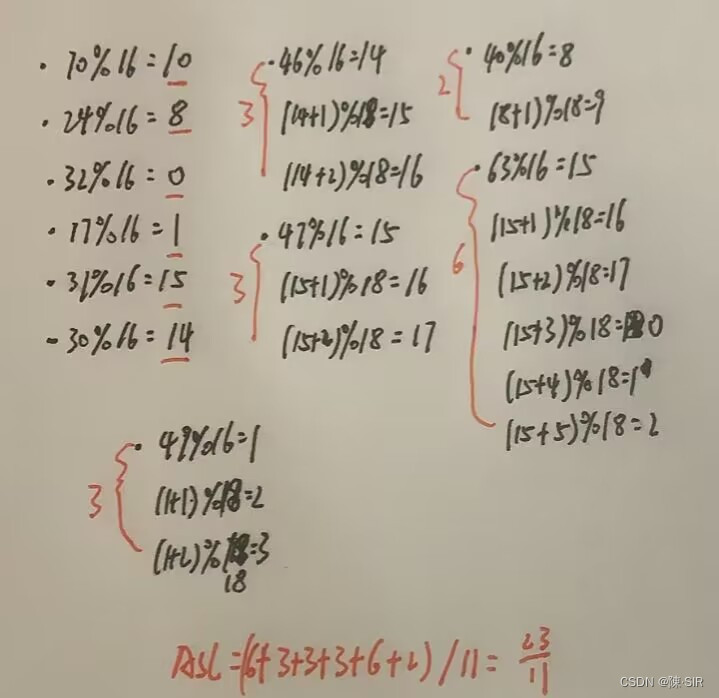 · 10%16=10
· 24%16=8
· 32%16=0
· 17%16=1
· 31%16=15
· 30%16=14
3
· 46%16=14
(14+1)%18=15
(14+2)%18=16
3
· 47%16=15
(15+1)%18=16
(15+2)%18=17
2
· 40%16=8
(8+1)%18=9
6
· 63%16=15
(15+1)%18=16
(15+2)%18=17
(15+3)%18=0
(15+4)%18=1
(15+5)%18=2
3
· 49%16=1
(1+1)%18=2
(1+2)%18=3
18
ASL=(6+3+3+3+6+2)/11=23/11
CSDN @陳·SIR